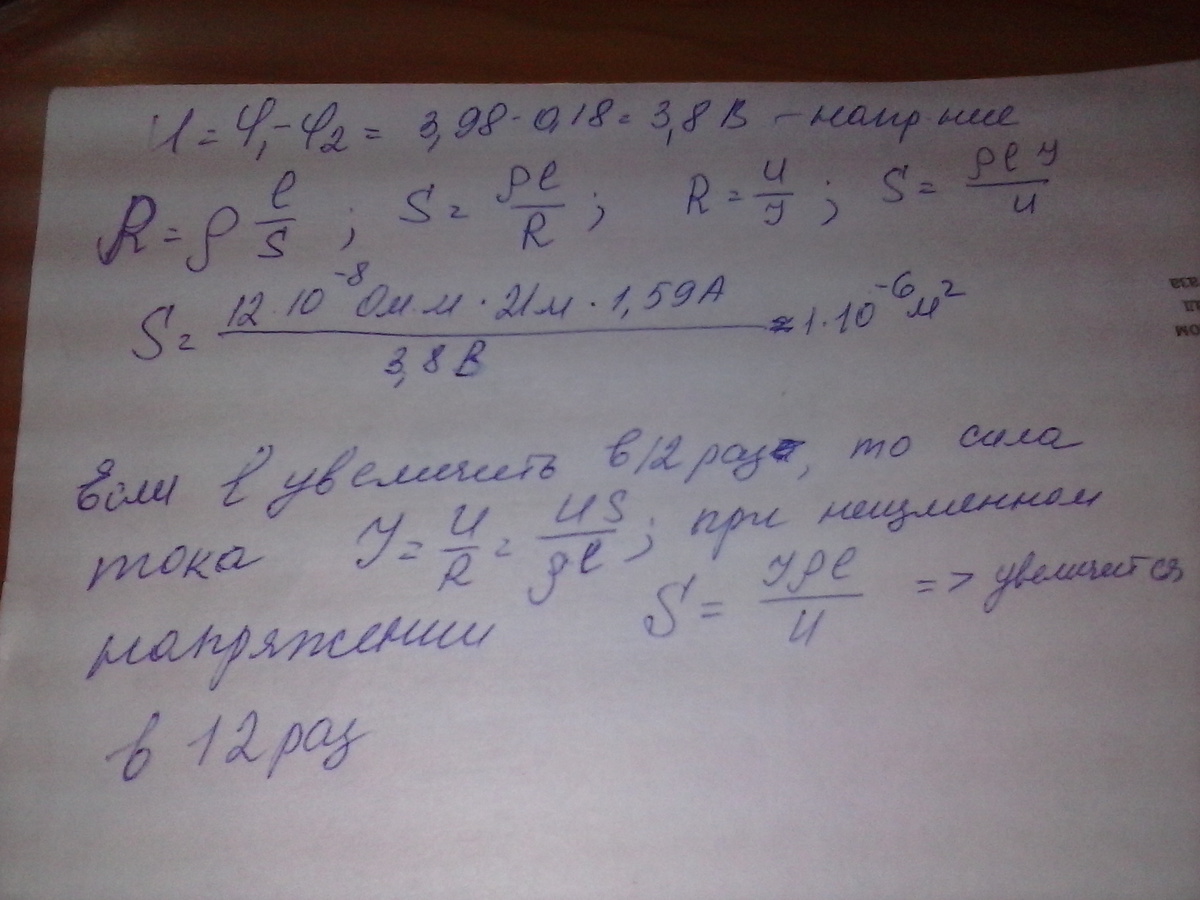 U = φ₁ - φ₂ = 3,98 - 0,18 = 3,8 В - напр-ние
R = ρ l/S ; S = ρl/R ; R = U/I ; S = ρlI/U
S = 12·10⁻⁸ Ом·м · 21м · 1,59А / 3,8 В ≈ 1·10⁻⁶ м²
Если l увеличить в 12 раз, то сила
тока I = U/R = US/ρl ; при неизменном
напряжении S = Iρl/U => увеличится
в 12 раз